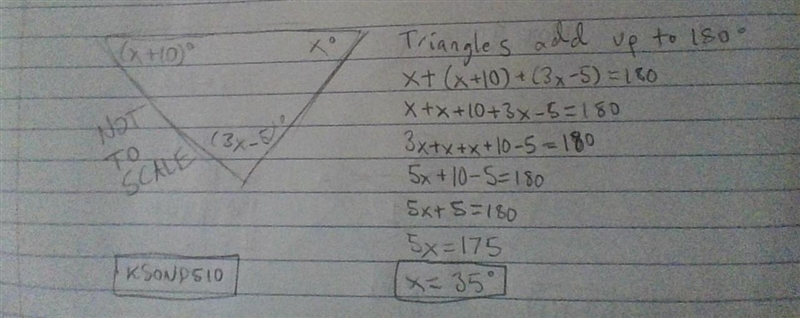 (x+10)°
x°
(3x-5)°
NOT
TO
SCALE
KSOND510
Triangles add up to 180°
x+(x+10)+(3x-5)=180
x+x+10+3x-5=180
3x+x+x+10-5=180
5x+10-5=180
5x+5=180
5x=175
x=35°